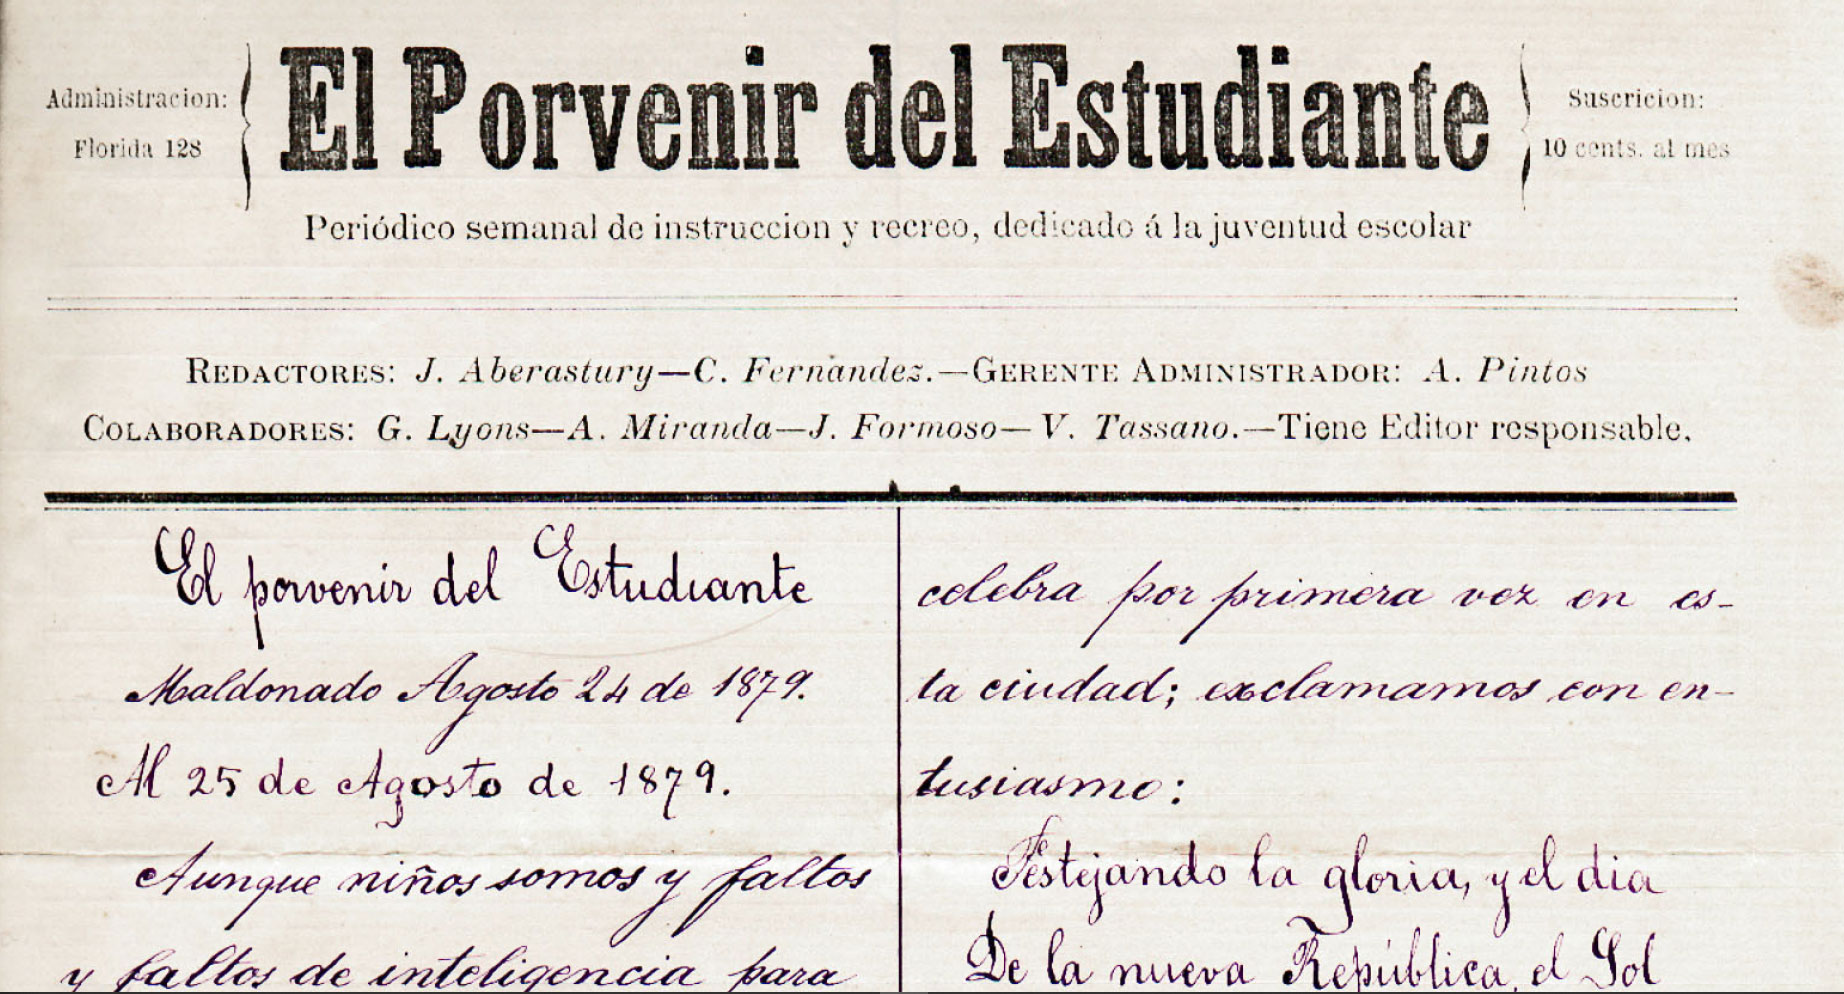 Administracion:
Florida 128
El Porvenir del Estudiante
Suscricion:
10 cents. al mes
Periódico semanal de instruccion y recreo, dedicado á la juventud escolar
REDACTORES: J. Aberastury—C. Fernàndez.—GERENTE ADMINISTRADOR: A. Pintos
COLABORADORES: G. Lyons—A. Miranda—J. Formoso—V. Tassano.—Tiene Editor responsable.
El porvenir del Estudiante
Maldonado Agosto 24 de 1879.
Al 25 de Agosto de 1879.
Aunque niños somos y faltos
y faltos de inteligencia para
celebra por primera vez en es-
ta ciudad; exclamamos con en-
tusiasmo:
Festejando la gloria, y el dia
De la nueva República, el Sol